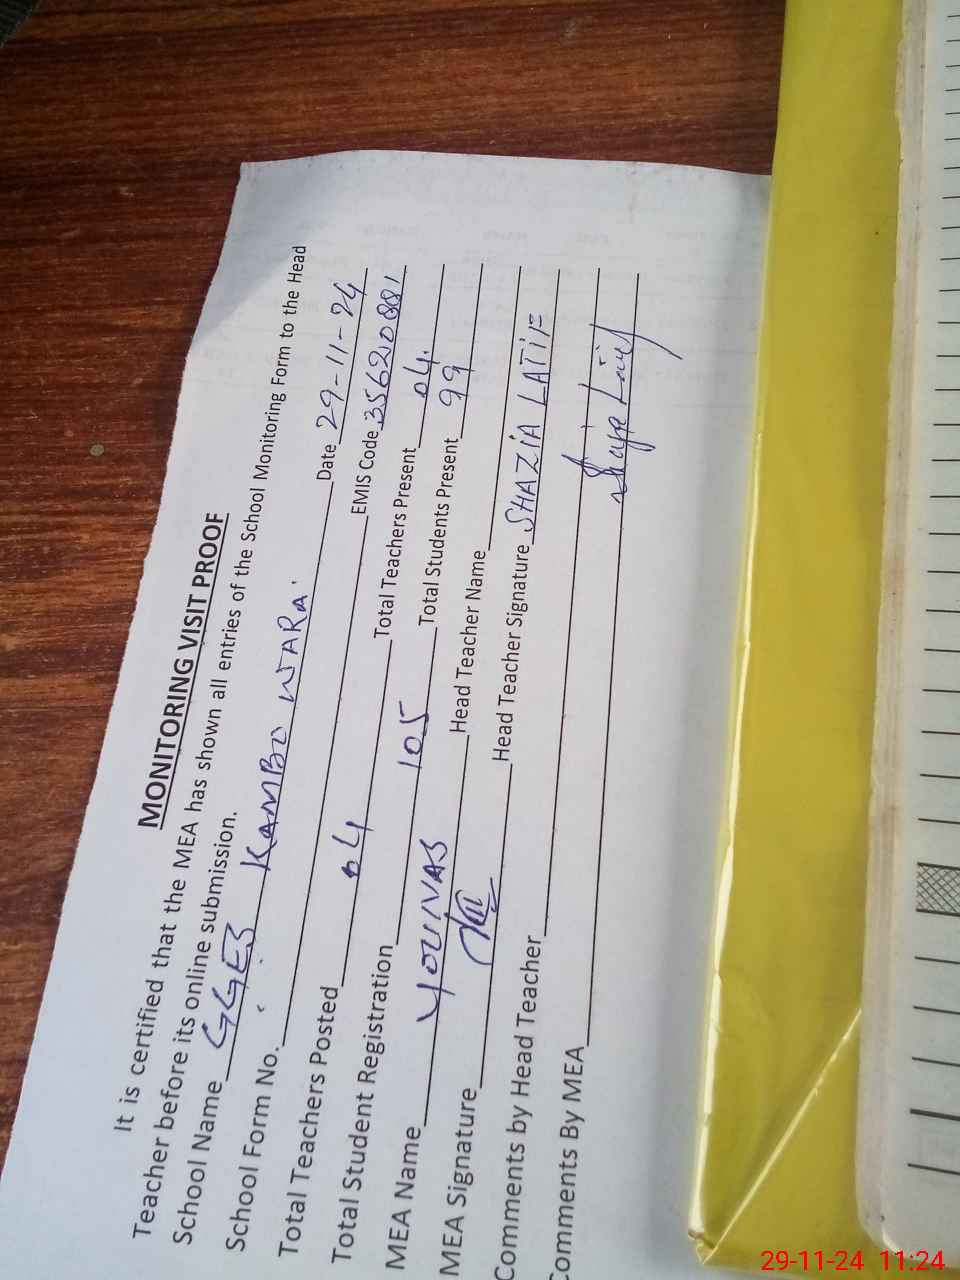 MONITORING VISIT PROOF
It is certified that the MEA has shown all entries of the School Monitoring Form to the Head
Teacher before its online submission.
School Name GGES KAMBO WARA Date 29-11-24
School Form No. EMIS Code 35620881
Total Teachers Posted 04 Total Teachers Present 04
Total Student Registration 105 Total Students Present 99
MEA Name YOUNAS Head Teacher Name
MEA Signature Head Teacher Signature SHAZIA LATIF
Comments by Head Teacher
Comments By MEA
29-11-24 11:24